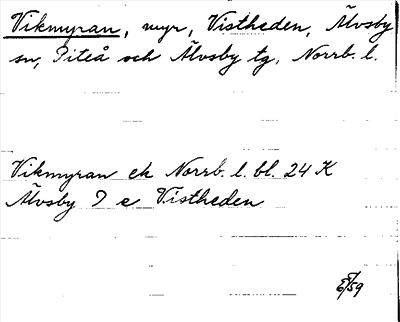 Vikmyran, myr, Vistheden, Älvsby
sn, Piteå och Älvsby tg, Norrb. l.
Vikmyran ek Norrb. l. bl. 24 K
Älvsby 9 e Vistheden
/59